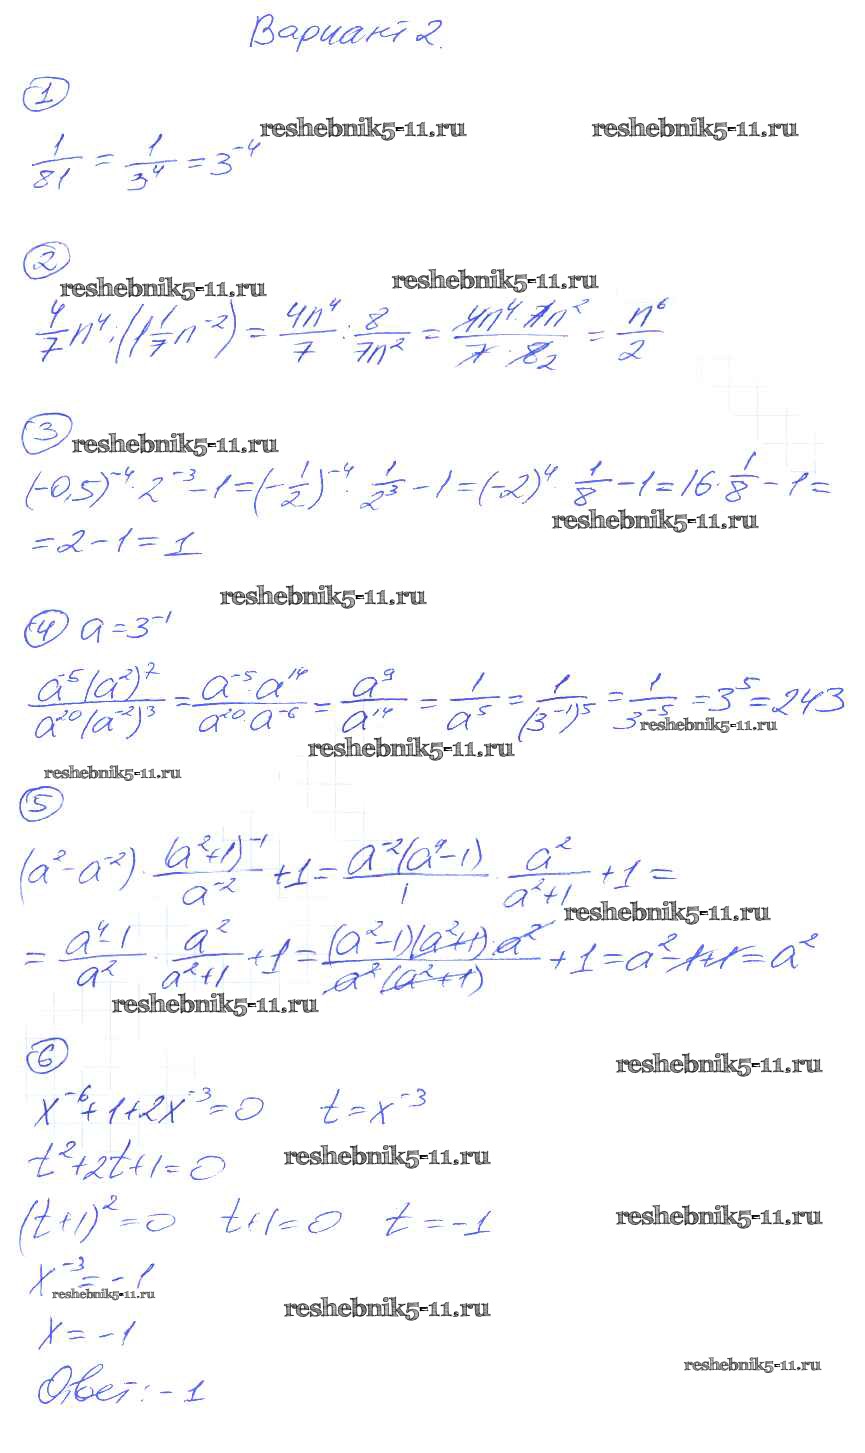 Вариант 2.
1
reshebnik5-11.ru reshebnik5-11.ru
1/81 = 1/3⁴ = 3⁻⁴
2
reshebnik5-11.ru reshebnik5-11.ru
4/7 n⁴ : (1 1/7 n⁻²) = 4n⁴/7 : 8/7n² = 4n⁴·7n²/7·8 2 = n⁶/2
3 reshebnik5-11.ru
(-0,5)⁻⁴ · 2⁻³ - 1 = (-1/2)⁻⁴ · 1/2³ - 1 = (-2)⁴ · 1/8 - 1 = 16 · 1/8 - 1 =
reshebnik5-11.ru
= 2 - 1 = 1
reshebnik5-11.ru
4 a = 3⁻¹
a⁻⁵(a²)⁷/a²⁰(a⁻²)³ = a⁻⁵·a¹⁴/a²⁰·a⁻⁶ = a⁹/a¹⁴ = 1/a⁵ = 1/(3⁻¹)⁵ = 1/3⁻⁵ = 3⁵ = 243
reshebnik5-11.ru
reshebnik5-11.ru
reshebnik5-11.ru
5
(a² - a⁻²) · (a²+1)⁻¹/a⁻² + 1 = a⁻²(a⁴-1)/1 · a²/a²+1 + 1 =
reshebnik5-11.ru
= a⁴-1/a² · a²/a²+1 + 1 = (a²-1)(a²+1)·a²/a²(a²+1) + 1 = a² - 1 + 1 = a²
reshebnik5-11.ru
6
reshebnik5-11.ru
x⁻⁶ + 1 + 2x⁻³ = 0 t = x⁻³
t² + 2t + 1 = 0
reshebnik5-11.ru
(t+1)² = 0 t+1 = 0 t = -1
reshebnik5-11.ru
x⁻³ = -1
reshebnik5-11.ru
reshebnik5-11.ru
x = -1
reshebnik5-11.ru
Ответ: -1